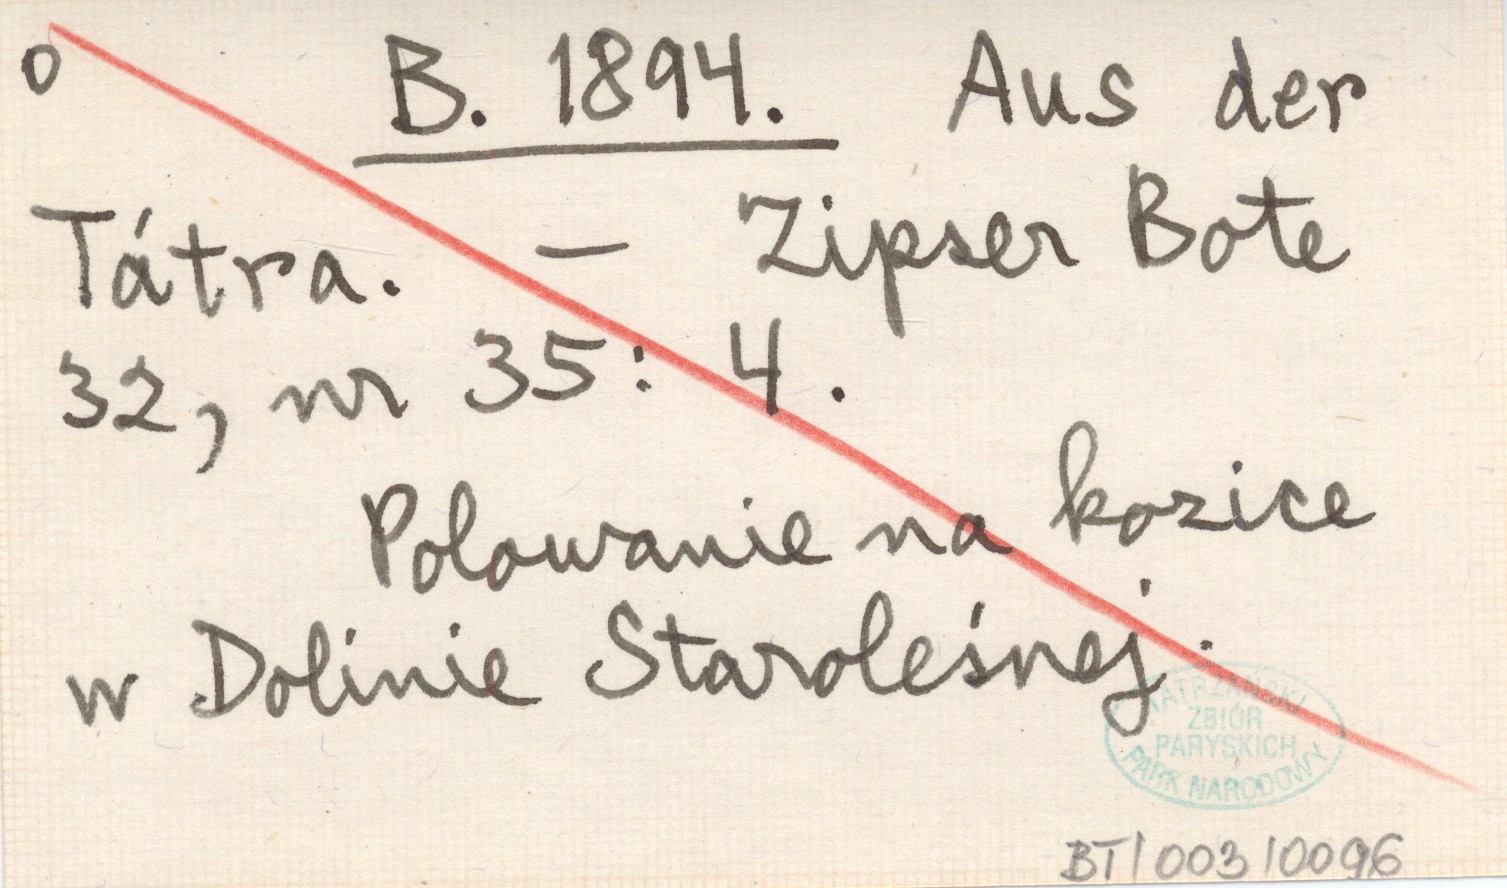 o B. 1894. Aus der
Tátra. — Zipser Bote
32, nr 35: 4.
Polowanie na kozice
w Dolinie Staroleśnej.
TATRZAŃSKI
ZBIÓR
PARYSKICH
PARK NARODOWY
BT/003/0096